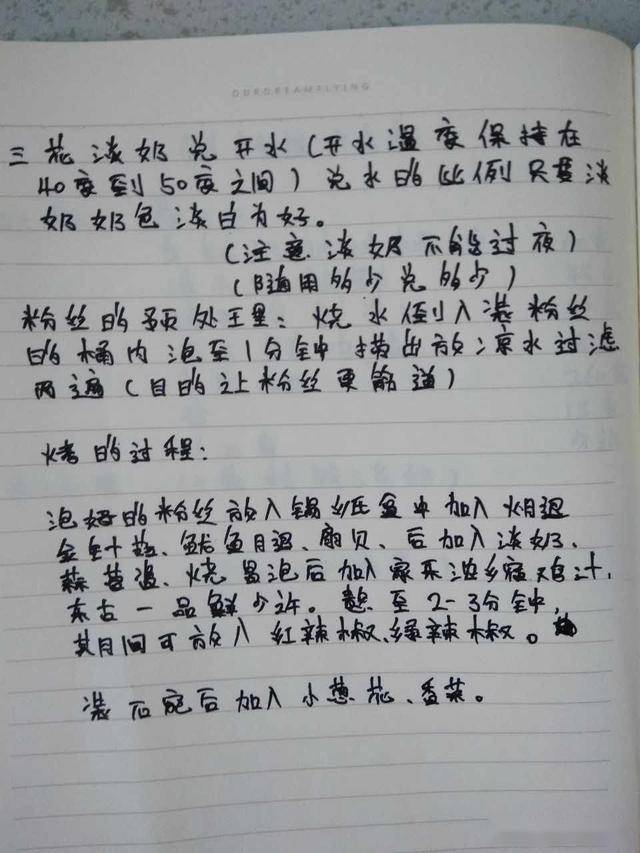 OURDREAMFLYING
三花淡奶兑开水(开水温度保持在
40度到50度之间)兑水的比例只要淡
奶奶色淡白为好。
(注意淡奶不能过夜)
(随用多少兑多少)
粉丝的预处理:烧水倒入装粉丝
的桶内泡至1分钟捞出放凉水过滤
两遍(目的让粉丝更筋道)
烤的过程:
泡好的粉丝放入锡纸盒中加入火腿
金针菇、鱿鱼腿、扇贝、后加入淡奶、
蒜蓉酱、烧冒泡后加入家乐浓缩鸡汁,
东古一品鲜少许。至2-3分钟,
其间可放入红辣椒、绿辣椒。
装石碗后加入小葱花、香菜。